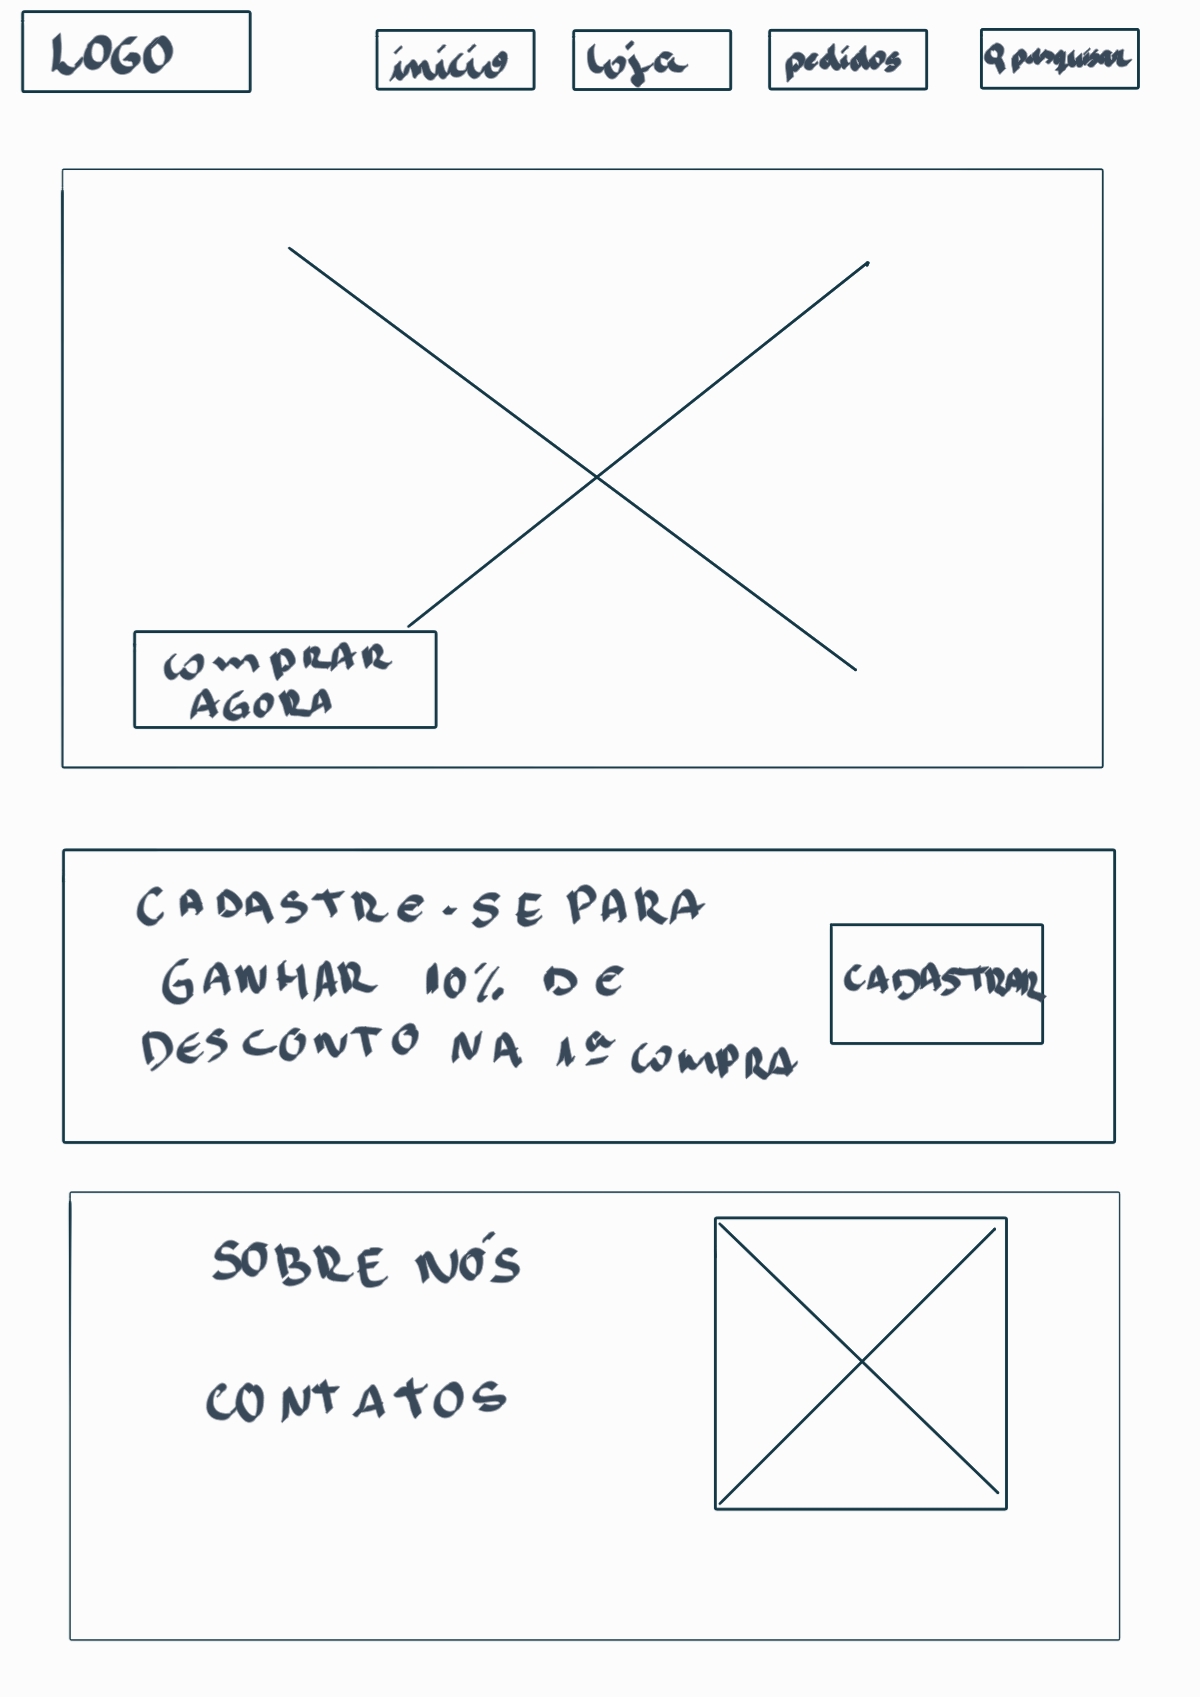 LOGO
início
loja
pedidos
pesquisar
COMPRAR
AGORA
CADASTRE-SE PARA
GANHAR 10% DE
DESCONTO NA 1ª COMPRA
CADASTRAR
SOBRE NÓS
CONTATOS